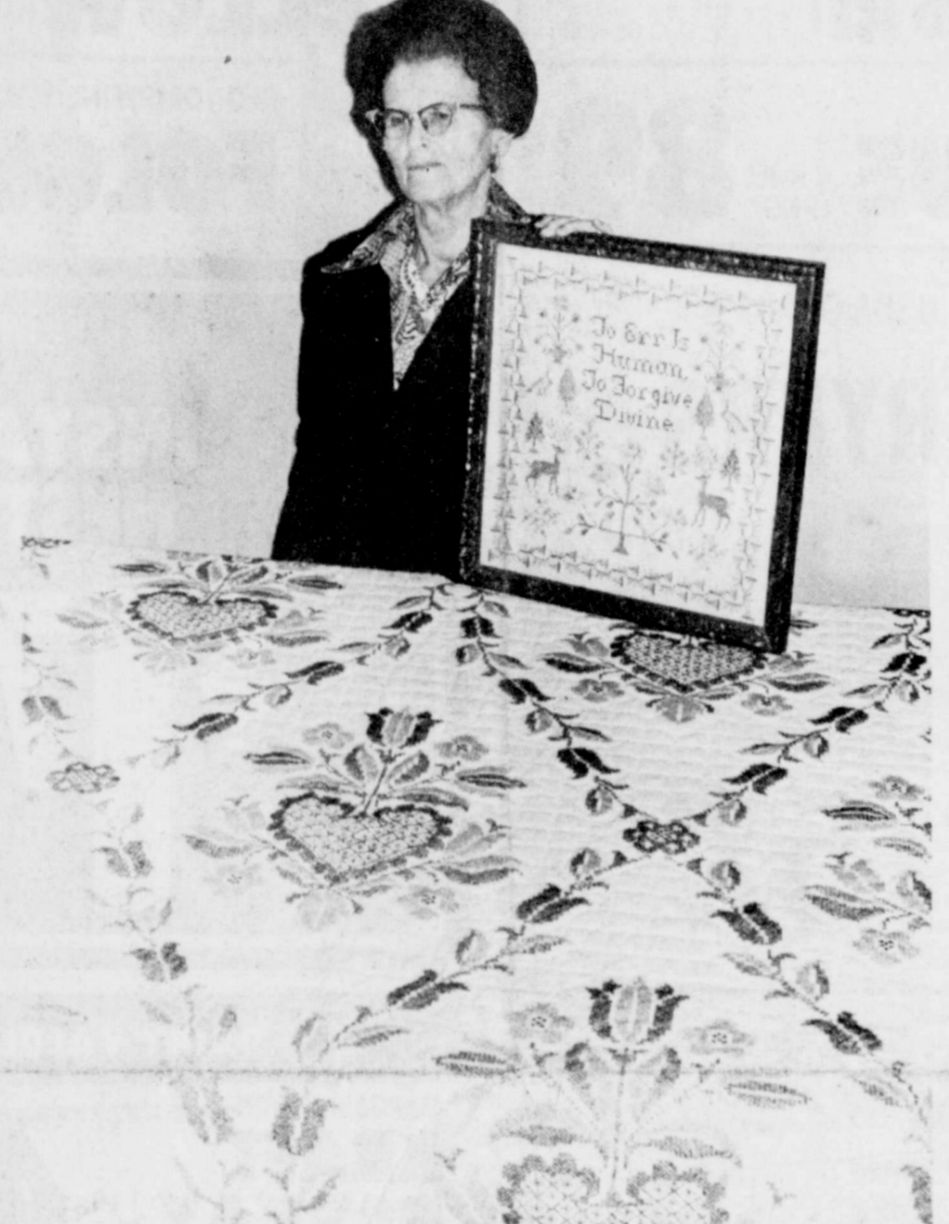 To Err Is
Human,
To Forgive
Divine